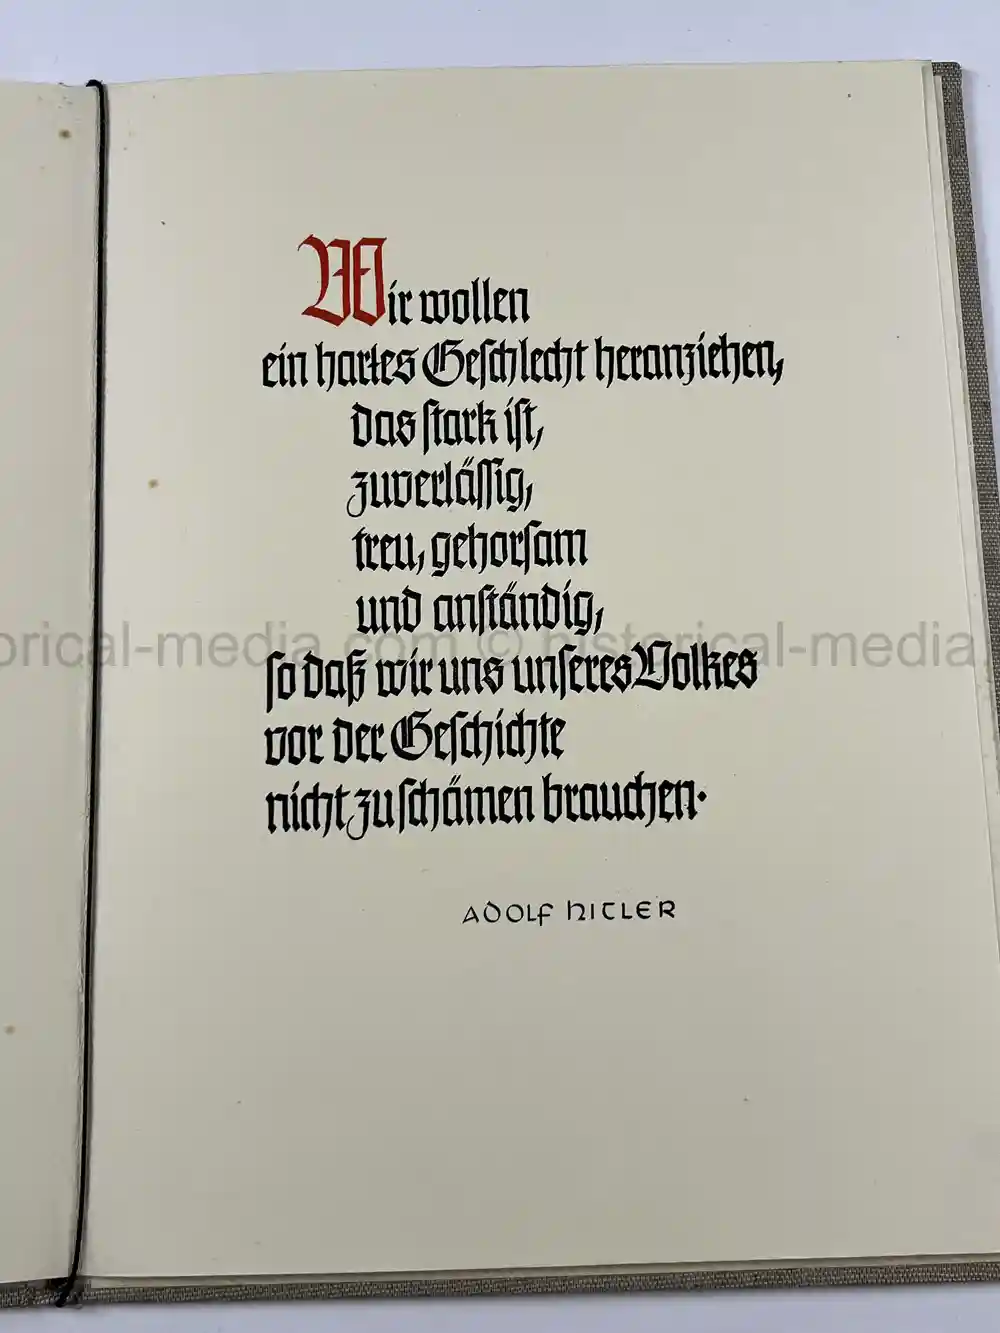 Wir wollen
ein hartes Geschlecht heranziehen,
das stark ist,
zuverlässig,
treu, gehorsam
und anständig,
so daß wir uns unseres Volkes
vor der Geschichte
nicht zu schämen brauchen.
ADOLF HITLER
orical-media.com © historical-media.